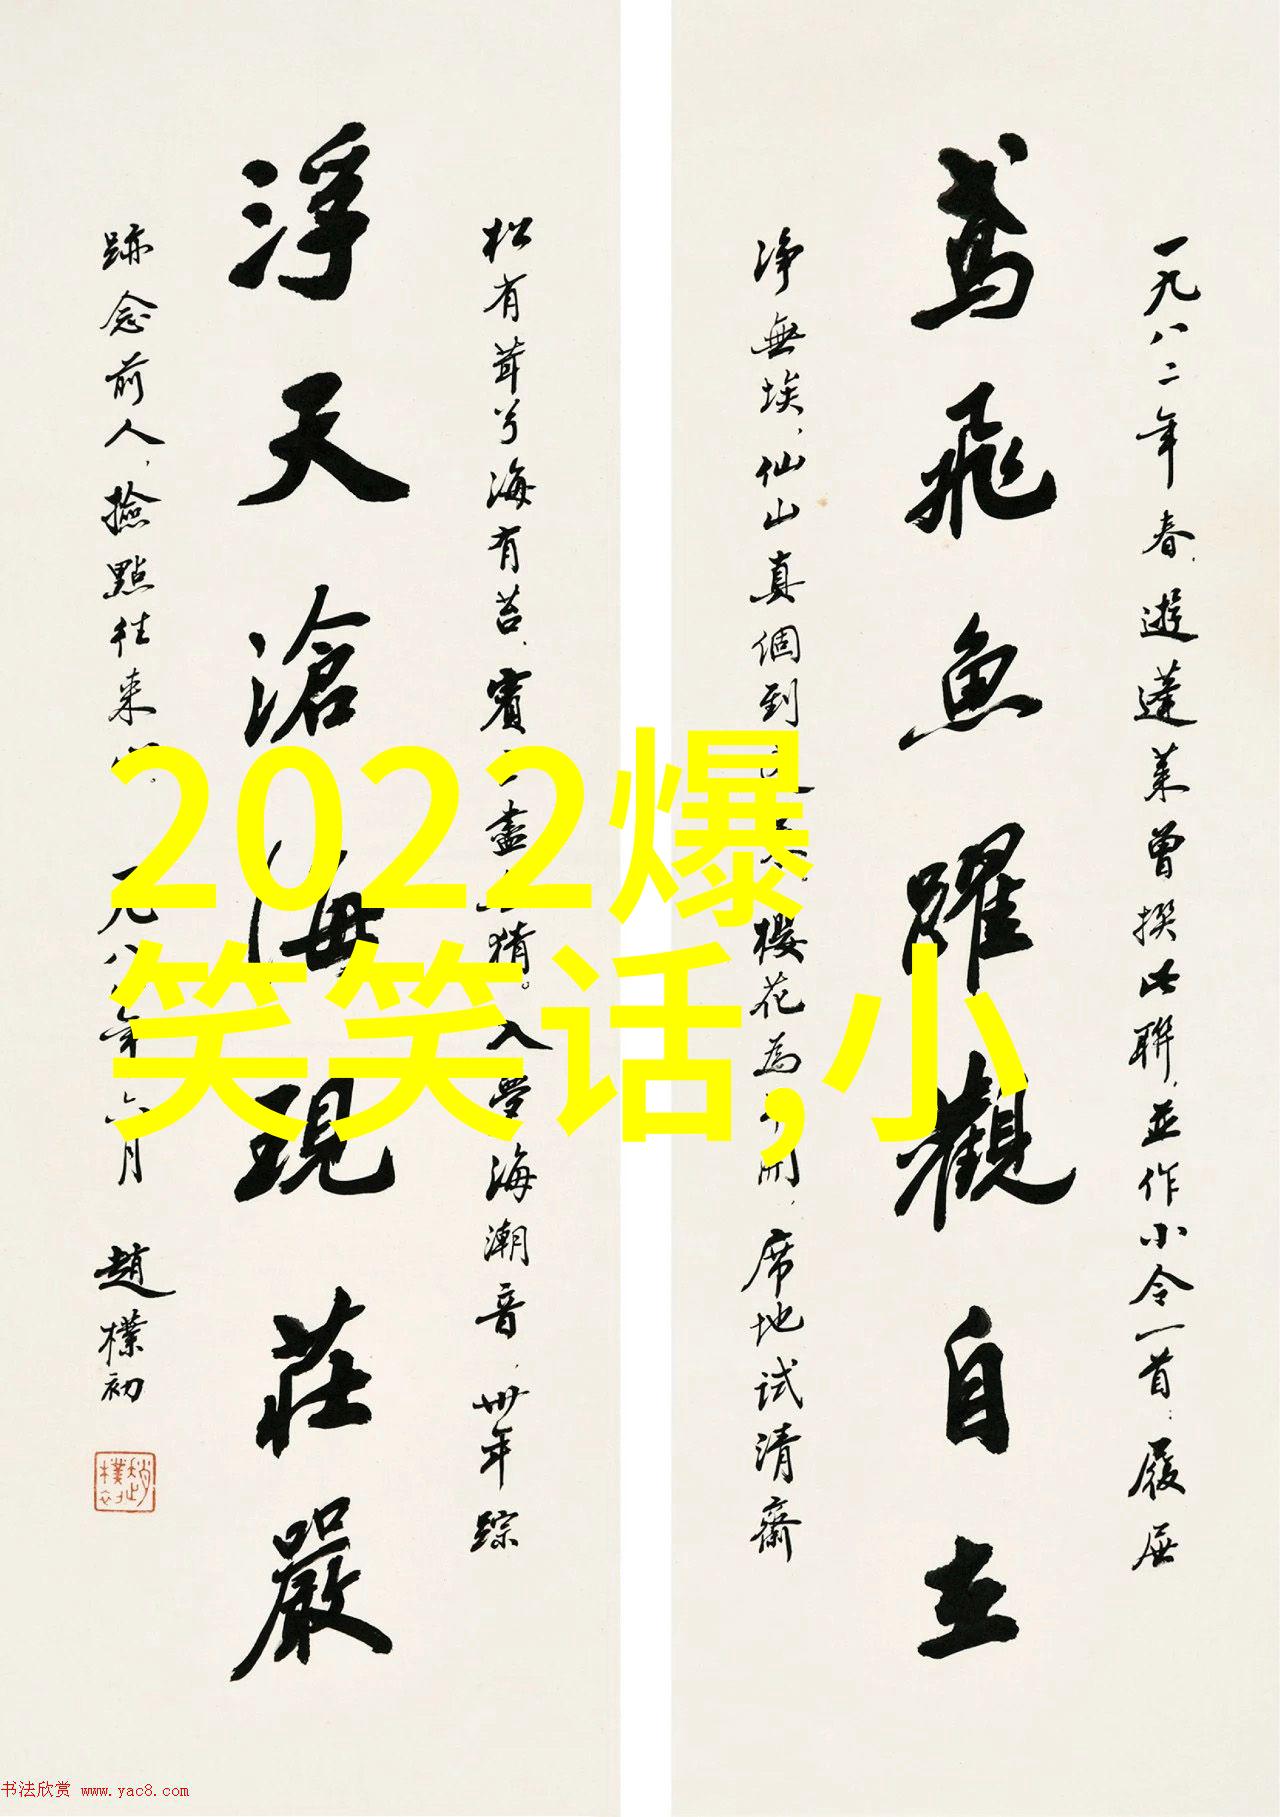 一九八二年春，遊蓬莱曾撰此聯，並作小令一首：履屐
鳶飛魚躍觀自在
净無埃，仙山真個到
櫻花為
開，席地試清齋
松有茸兮海有苔，賓
盡
猜。入
海潮音，卅年踪
浮天滄海現莊嚴
跡念前人，撿點往來
年六月
趙樸初
趙樸初
2022爆
笑笑话,小
书法欣赏 www.yac8.com